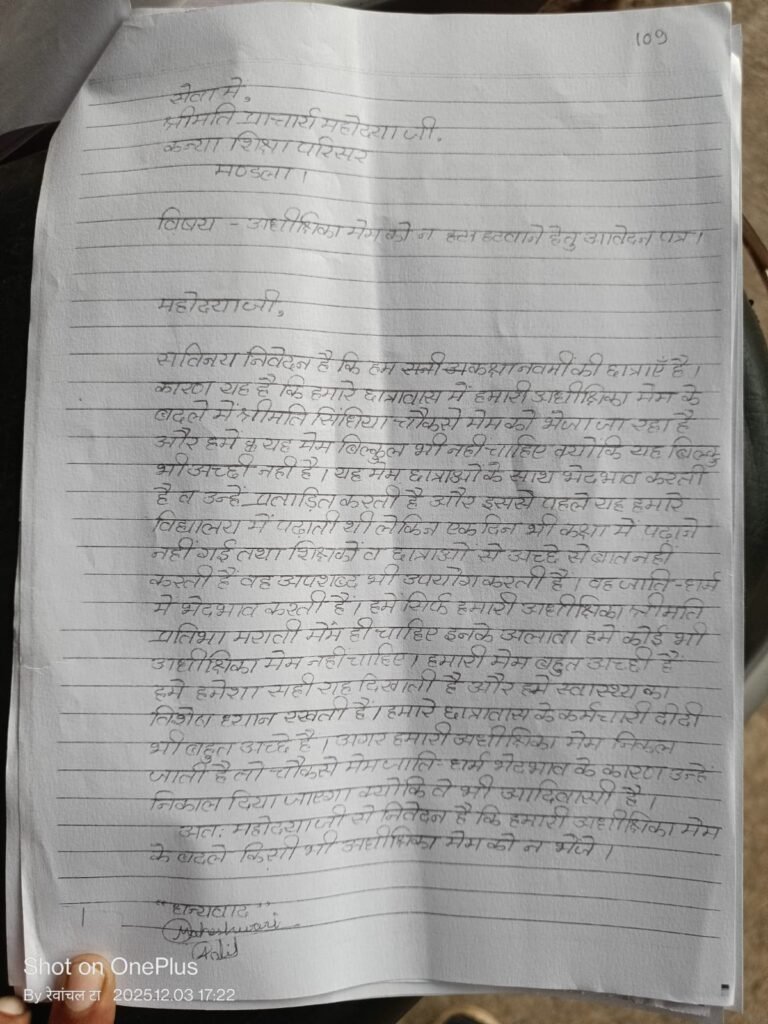 109
सेवा मे,
श्रीमति प्राचार्य महोदया जी.
कन्या शिक्षा परिसर
मण्डला ।
विषय - अधीक्षिका मेम को न हटवाने हेतु आवेदन पत्र ।
महोदया जी,
सविनय निवेदन है कि हम कक्षा नवमीं की छात्राएँ है ।
कारण यह है कि हमारे छात्रावास में हमारी अधीक्षिका मेम के
बदले में श्रीमति सिंधिया चौकसे मेम को भेजा जा रहा है
और हमे यह मेम बिल्कुल भी नही चाहिए क्योकि यह बिल्कु
भी अच्छी नही है । यह मेम छात्राओं के साथ भेदभाव करती
है व उन्हें प्रताड़ित करती है और इससे पहले यह हमारे
विद्यालय में पढ़ाती थी लेकिन एक दिन भी कक्षा मे पढ़ाने
नहीं गई तथा शिक्षकों व छात्राओं से अच्छे से बात नहीं
करती हैं वह अपशब्द भी उपयोग करती है । वह जाति-धर्म
में भेदभाव करती हैं । हमें सिर्फ हमारी अधीक्षिका श्रीमति
प्रतिभा मरावी मेंम ही चाहिए इनके अलावा हमे कोई भी
अधीक्षिका मेम नही चाहिए । हमारी मेम बहुत अच्छी हैं
हमे हमेशा सही राह दिखाती है और हमे स्वास्थ्य का
विशेष ध्यान रखती हैं । हमारे छात्रावास के कर्मचारी दीदी
भी बहुत अच्छे है । अगर हमारी अधीक्षिका मेम निकल
जाती है तो चौकसे मेम जाति-धर्म भेदभाव के कारण उन्हें
निकाल दिया जाएगा क्योकि वे भी आदिवासी है ।
अतः महोदया जी से निवेदन है कि हमारी अधीक्षिका मेम
के बदले किसी भी अधीक्षिका मेम को न भेजे ।
"धन्यवाद"
Maheshwari
Shot on OnePlus
By रेवांचल टा 2025.12.03 17:22